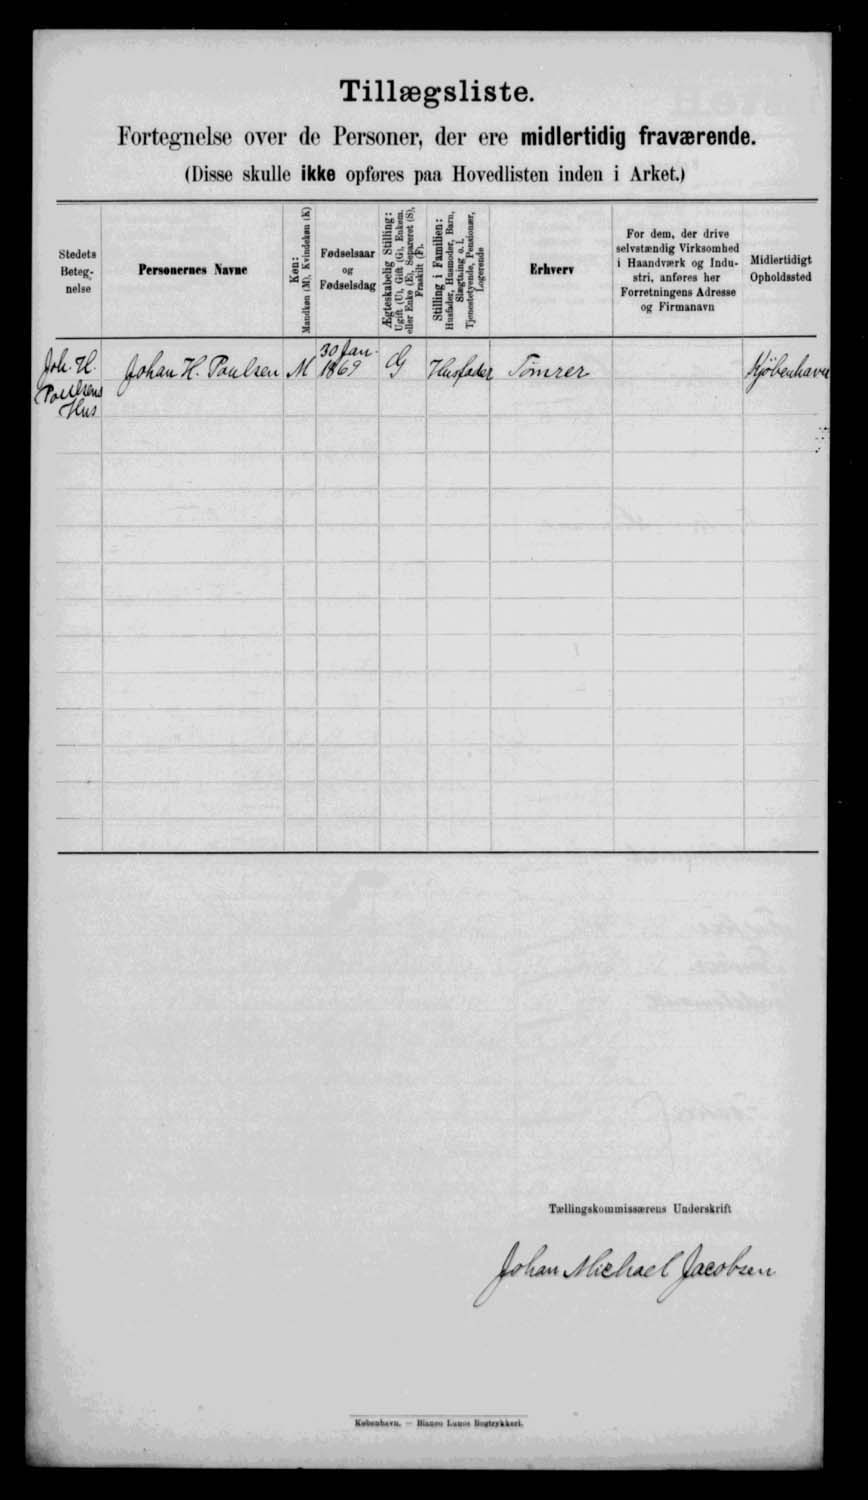 Tillægsliste.
Fortegnelse over de Personer, der ere midlertidig fraværende.
(Disse skulle ikke opføres paa Hovedlisten inden i Arket.)
Stedets
Beteg-
nelse
Personernes Navne
Køn:
Mandkøn (M), Kvindekøn (K)
Fødselsaar
og
Fødselsdag
Ægteskabelig Stilling:
Ugift (U), Gift (G), Enkem.
eller Enke (E), Separeret (S),
Fraskilt (F).
Stilling i Familien:
Husfader, Husmoder, Barn,
Slægtning o. l.
Tjenestetyende, Pensionær,
Logerende
Erhverv
For dem, der drive
selvstændig Virksomhed
i Haandværk og Indu-
stri, anføres her
Forretningens Adresse
og Firmanavn
Midlertidigt
Opholdssted
Joh. H.
Poulsens
Hus
Johan H. Poulsen
M
30 Jan.
1869
G
Husfader
Tømrer
Kjøbenhavn
Tællingskommissærens Underskrift
Johan Michael Jacobsen
København. — Bianco Lunos Bogtrykkeri.